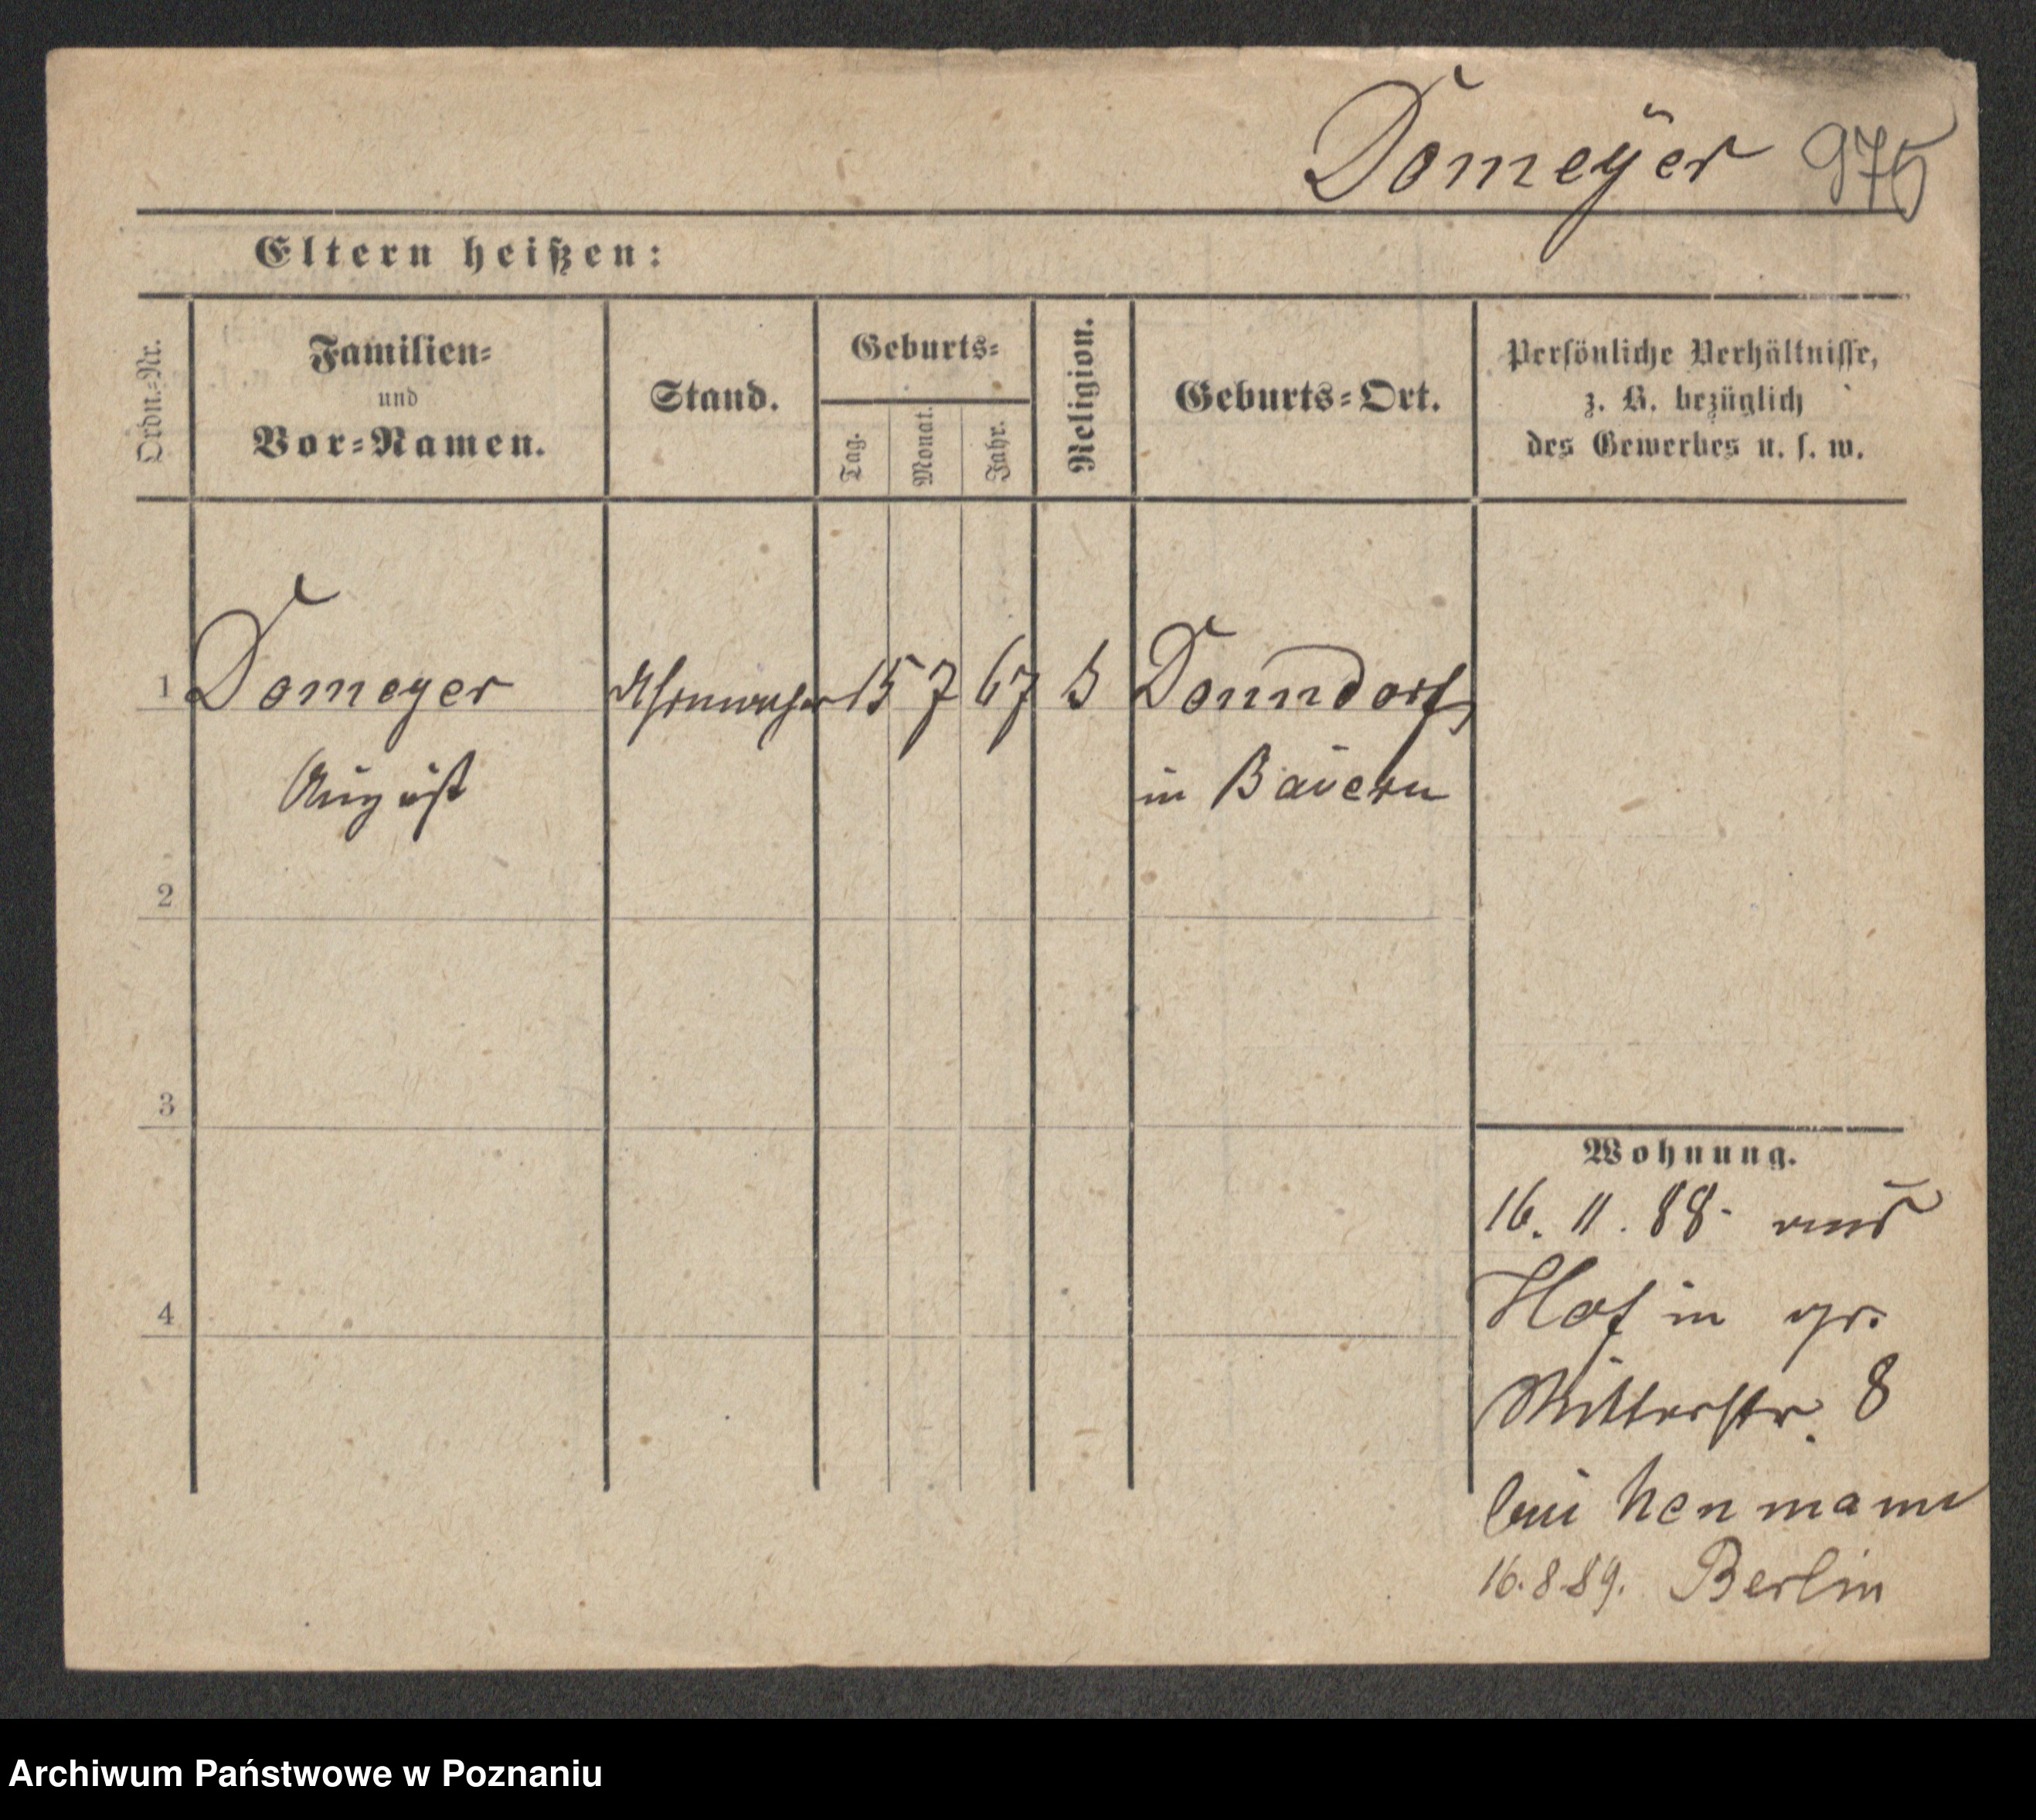 Domeÿer 975
Eltern heißen:
Ordn.=Nr.
Familien=
und
Vor=Namen.
Stand.
Geburts=
Tag.
Monat.
Jahr.
Religion.
Geburts=Ort.
Persönliche Verhältnisse,
z. B. bezüglich
des Gewerbes u. s. w.
1 Domeyer 15 7 67 Donndorf
August in Bauern
2
3
4
Wohnung.
16. 11. 88. aus
Hof in gr.
Ritterstr. 8
bei
16.8.89. Berlin
Archiwum Państwowe w Poznaniu